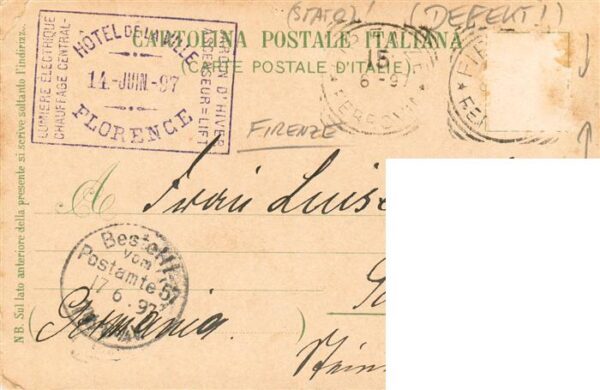 (STATO?) (DEFEKT!)
CARTOLINA POSTALE ITALIANA
(CARTE POSTALE D'ITALIE)
LUMIERE ELECTRIQUE
CHAUFFAGE CENTRAL-
HÔTEL DE LA VILLE
14-JUIN-97
FLORENCE
JARDIN D'HIVER
ASCENSEUR=LIFT
15
6-97
FERROVIA
FIRENZE
A Frau Luise
Bestellt
vom
Postamte 57
17 6.97
Germania.
NB. Sul lato anteriore della presente si scrive soltanto l'indirizzo.